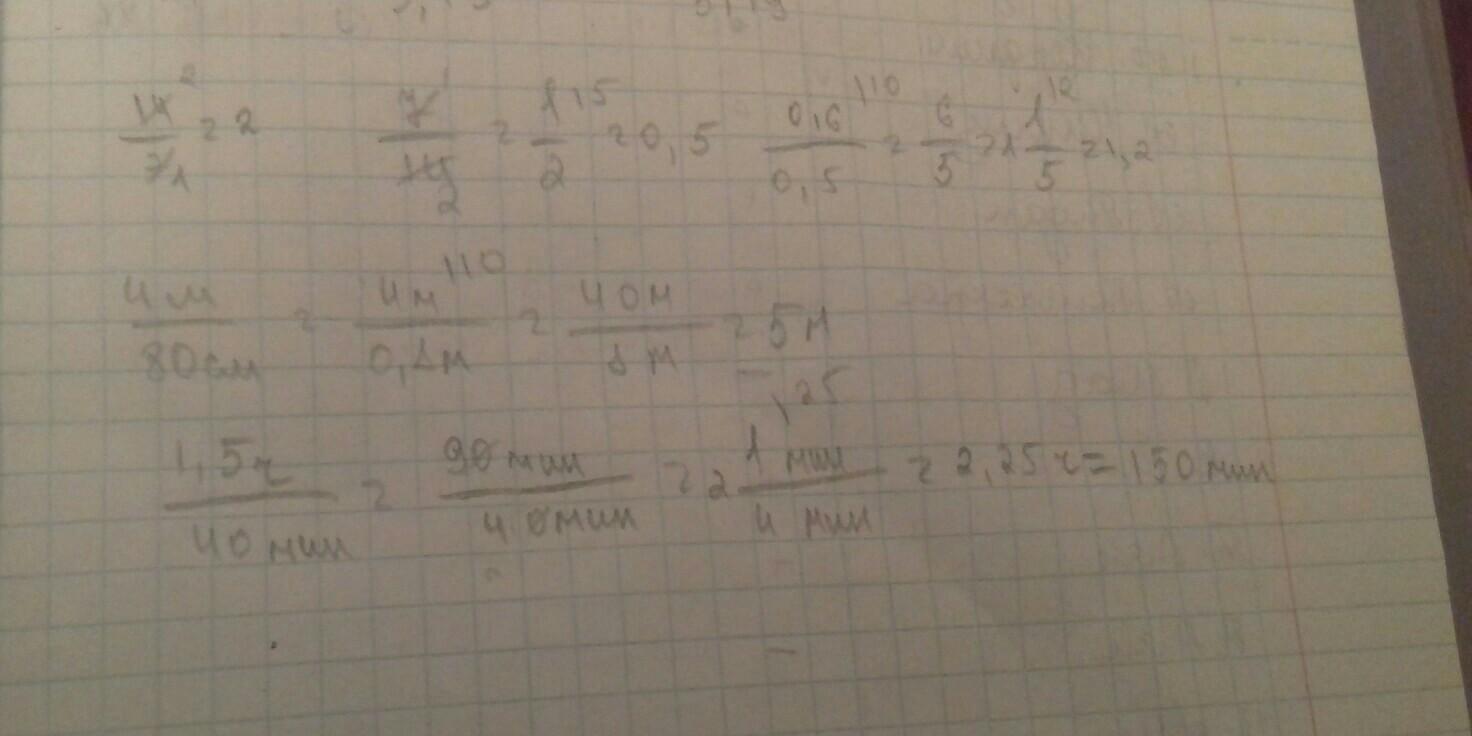 14/7 2 1 = 2 7/14 1 2 = 1/2 |5 = 0,5 0,6/0,5 |10 = 6/5 = 1 1/5 |2 = 1,2
4м/80см = 4м/0,8м |10 = 40м/8м = 5м
1,5ч/40мин = 90мин/40мин = 2 1мин/4мин |25 = 2,25ч = 150мин